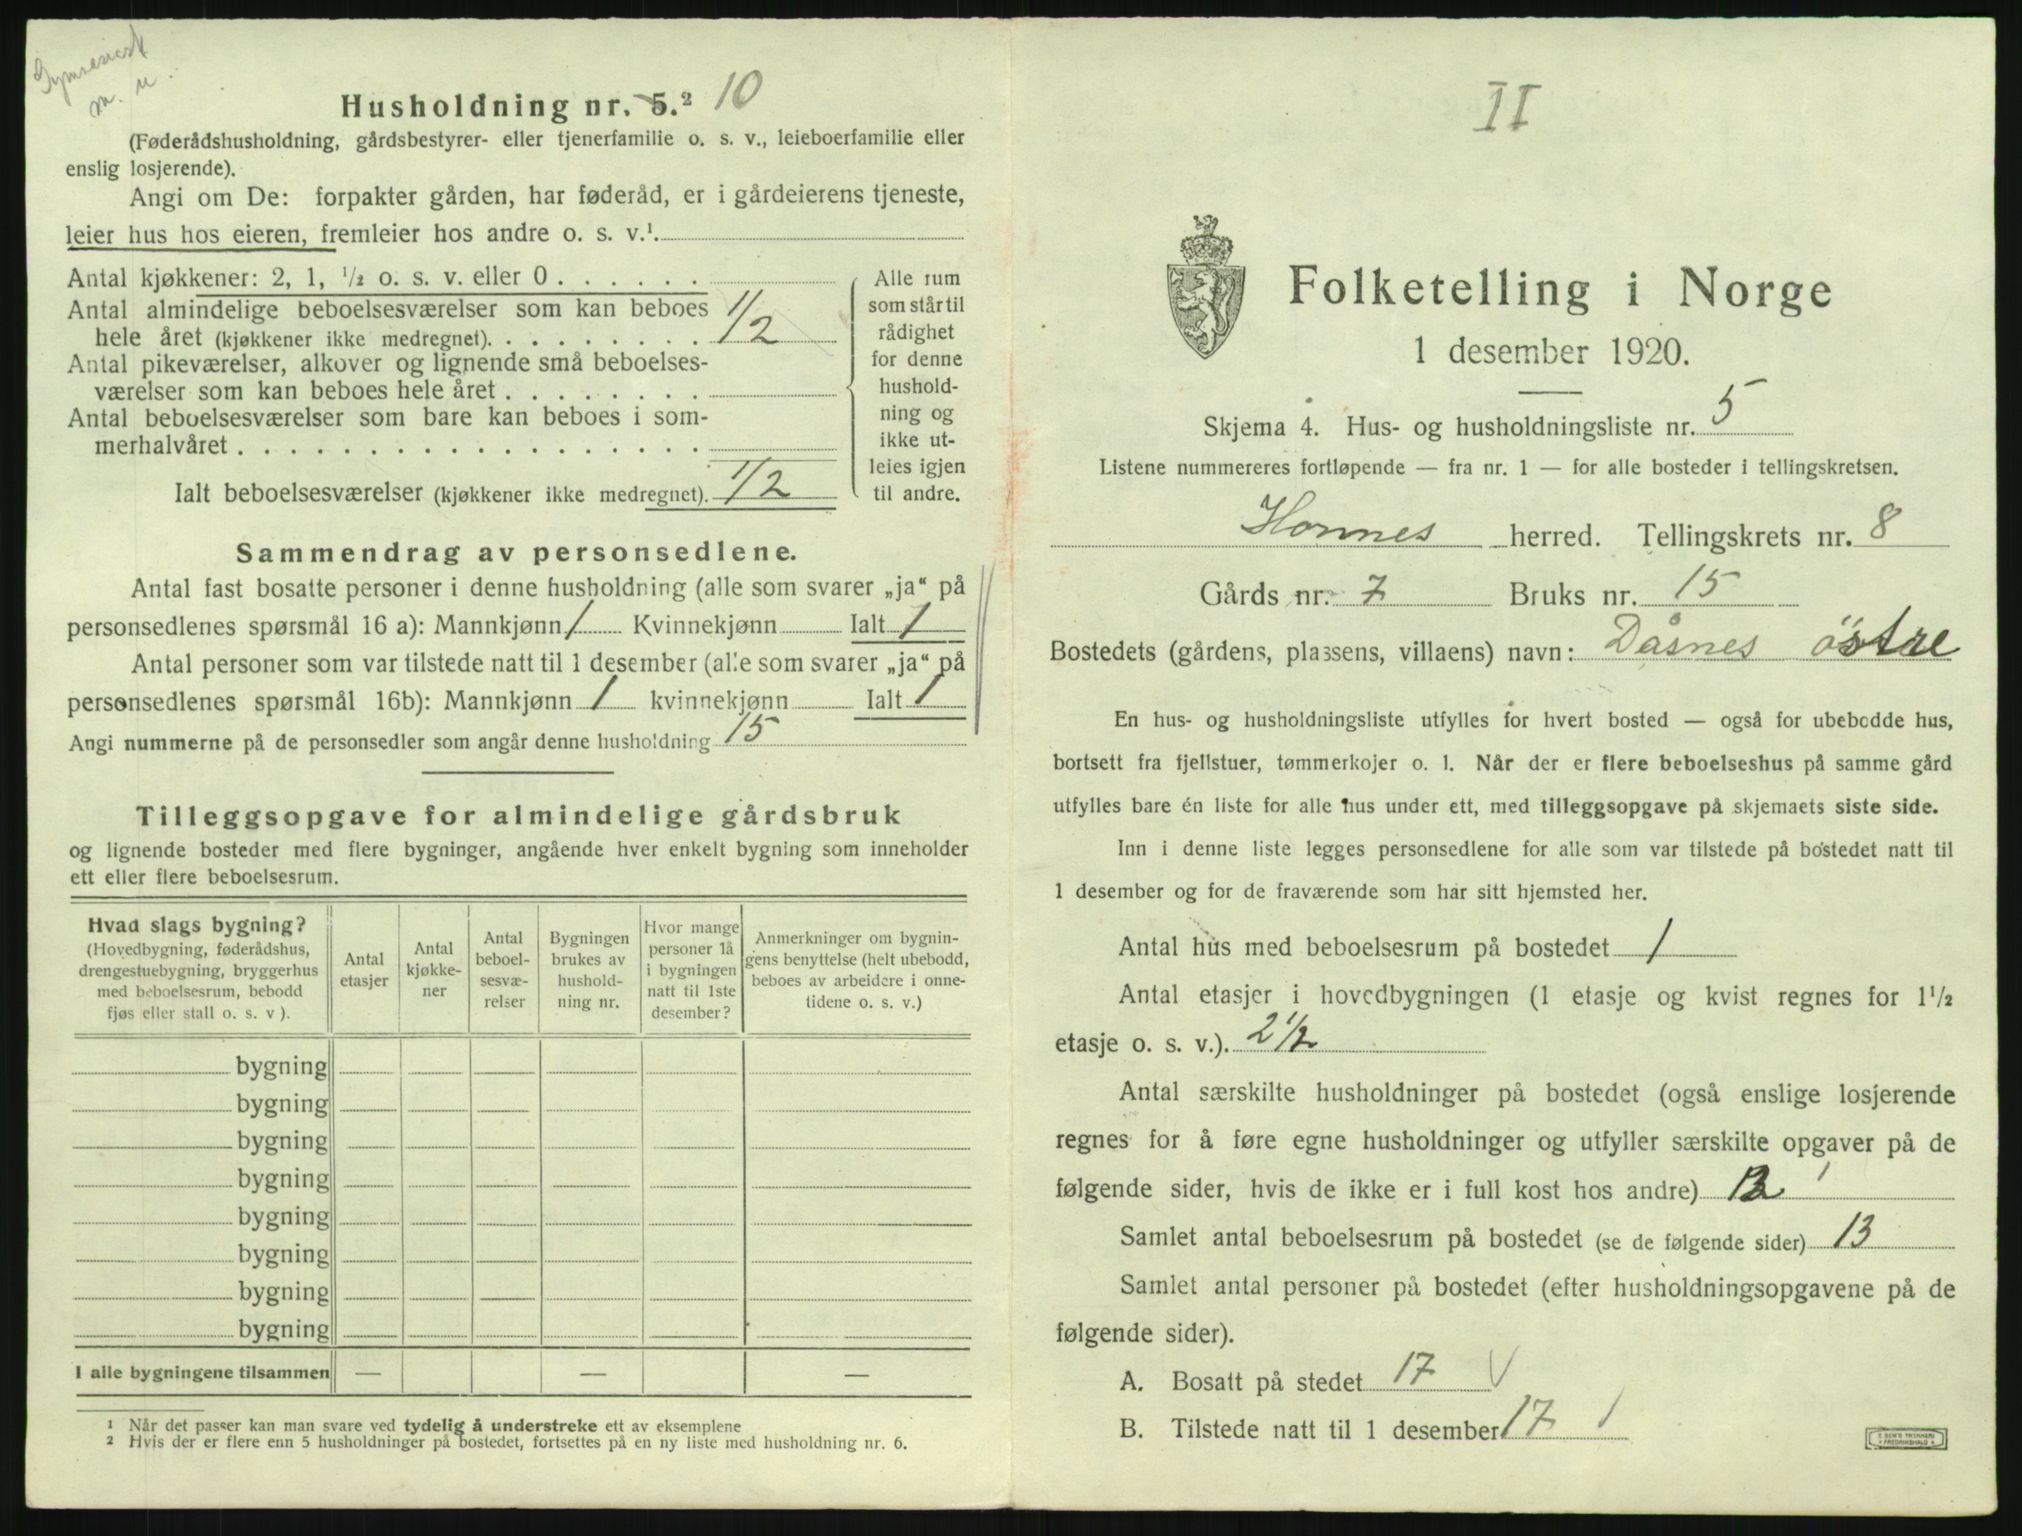 Gymnasiast
m. u.
Husholdning nr. 5.² 10
(Føderådshusholdning, gårdsbestyrer- eller tjenerfamilie o. s. v., leieboerfamilie eller
enslig losjerende).
Angi om De: forpakter gården, har føderåd, er i gårdeierens tjeneste,
leier hus hos eieren, fremleier hos andre o. s. v.¹.
Antal kjøkkener: 2, 1, ½ o. s. v. eller 0 . . . . . .
Antal almindelige beboelsesværelser som kan beboes
hele året (kjøkkener ikke medregnet). . . . . . . . . 1/2
Antal pikeværelser, alkover og lignende små beboelses-
værelser som kan beboes hele året . . . . . . . .
Antal beboelsesværelser som bare kan beboes i som-
merhalvåret . . . . . . . . . . . . . . . . . .
Ialt beboelsesværelser (kjøkkener ikke medregnet). 1/2
Alle rum
som står til
rådighet
for denne
hushold-
ning og
ikke ut-
leies igjen
til andre.
Sammendrag av personsedlene.
Antal fast bosatte personer i denne husholdning (alle som svarer „ja“ på
personsedlenes spørsmål 16 a): Mannkjønn 1 Kvinnekjønn Ialt 1
Antal personer som var tilstede natt til 1 desember (alle som svarer „ja“ på
personsedlenes spørsmål 16b): Mannkjønn 1 kvinnekjønn Ialt 1
Angi nummerne på de personsedler som angår denne husholdning 15
Tilleggsopgave for almindelige gårdsbruk
og lignende bosteder med flere bygninger, angående hver enkelt bygning som inneholder
ett eller flere beboelsesrum.
Hvad slags bygning?
(Hovedbygning, føderådshus,
drengestuebygning, bryggerhus
med beboelsesrum, bebodd
fjøs eller stall o. s. v ).
Antal
etasjer
Antal
kjøkke-
ner
Antal
beboel-
sesvæ-
relser
Bygningen
brukes av
hushold-
ning nr.
Hvor mange
personer lå
i bygningen
natt til 1ste
desember?
Anmerkninger om bygnin-
gens benyttelse (helt ubebodd,
beboes av arbeidere i onne-
tidene o. s. v.)
bygning
bygning
bygning
bygning
bygning
bygning
bygning
bygning
I alle bygningene tilsammen — — —
¹ Når det passer kan man svare ved tydelig å understreke ett av eksemplene
² Hvis der er flere enn 5 husholdninger på bostedet, fortsettes på en ny liste med husholdning nr. 6.
II
Folketelling i Norge
1 desember 1920.
Skjema 4. Hus- og husholdningsliste nr. 5
Listene nummereres fortløpende — fra nr. 1 — for alle bosteder i tellingskretsen.
Hornnes herred. Tellingskrets nr. 8
Gårds nr. 7 Bruks nr. 15
Bostedets (gårdens, plassens, villaens) navn: Dåsnes östre
En hus- og husholdningsliste utfylles for hvert bosted — også for ubebodde hus,
bortsett fra fjellstuer, tømmerkojer o. l. Når der er flere beboelseshus på samme gård
utfylles bare én liste for alle hus under ett, med tilleggsopgave på skjemaets siste side.
Inn i denne liste legges personsedlene for alle som var tilstede på bostedet natt til
1 desember og for de fraværende som har sitt hjemsted her.
Antal hus med beboelsesrum på bostedet 1
Antal etasjer i hovedbygningen (1 etasje og kvist regnes for 1½
etasje o. s. v.). 2 1/2
Antal særskilte husholdninger på bostedet (også enslige losjerende
regnes for å føre egne husholdninger og utfyller særskilte opgaver på de
følgende sider, hvis de ikke er i full kost hos andre)
Samlet antal beboelsesrum på bostedet (se de følgende sider) 13
Samlet antal personer på bostedet (efter husholdningsopgavene på de
følgende sider).
A. Bosatt på stedet 17
B. Tilstede natt til 1 desember 17